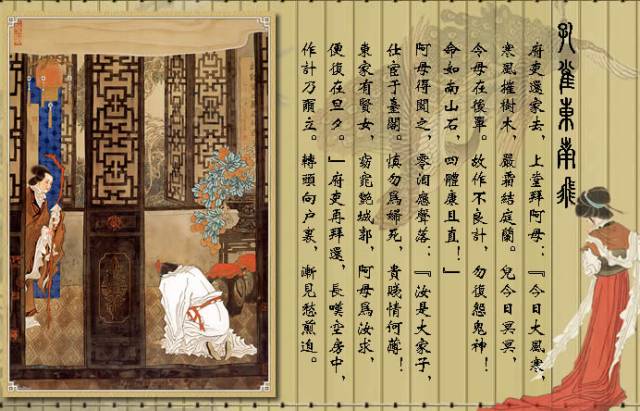 孔雀東南飛
府吏還家去，上堂拜阿母：『今日大風寒，
寒風摧樹木，嚴霜結庭蘭。兒今日冥冥，
令母在後單。故作不良計，勿復怨鬼神！
命如南山石，四體康且直！』
阿母得聞之，零淚應聲落：『汝是大家子，
仕宦于臺閣。慎勿爲婦死，貴賤情何薄！
東家有賢女，窈窕艷城郭，阿母爲汝求，
便復在旦夕。』府吏再拜還，長嘆空房中，
作計乃爾立。轉頭向户裏，漸見愁煎迫。